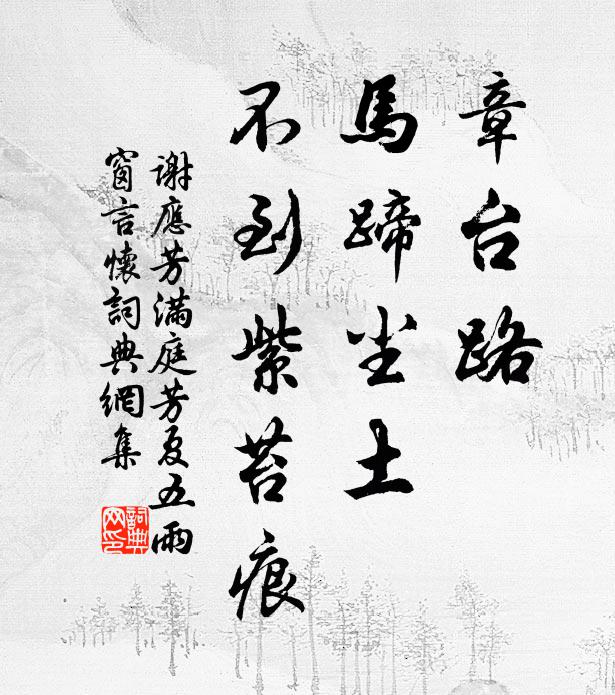 章台路
馬蹄尘土
不到紫苔痕
谢應芳滿庭芳夏五雨
窗言懷詞典網集
詞典网印